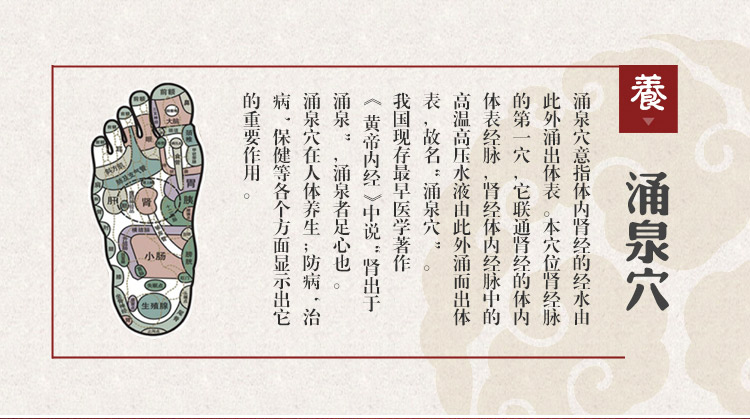 養
涌泉穴
涌泉穴意指体内肾经的经水由
此外涌出体表。本穴位肾经脉
的第一穴,它联通肾经的体内
体表经脉,肾经体内经脉中的
高温高压水液由此外涌而出体
表,故名“涌泉穴”。
我国现存最早医学著作
《黄帝内经》中说“肾出于
涌泉”,涌泉者足心也。
涌泉穴在人体养生;防病,治
病、保健等各个方面显示出它
的重要作用。
前額
鼻
大脑
眼
耳
斜方肌
肺及支气管
胃
肝
肾
胰
横结肠
小肠
膀胱
生殖腺